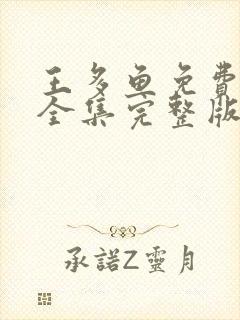 王多鱼免費
全集完整版
承諾Z靈月